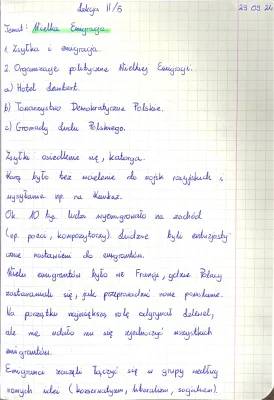 Lekcja II/5 29.09.24
Temat: Wielka Emigracja
1. Zsyłka i emigracja
2. Organizacje polityczne Wielkiej Emigracji.
a) Hotel Lambert.
b) Towarzystwo Demokratyczne Polskie.
c) Gromady Ludu Polskiego.
Zsyłki osiedlenie się, katorga.
Karą było też wcielenie do wojsk rosyjskich i
wysyłanie np. na Kaukaz.
Ok. 10 tyś. ludzi wyemigrowało na zachód
(np. poeci, kompozytorzy) ludzie byli entuzjasty
cznie nastawieni do emigrantów.
Wielu emigrantów było we Francji, gdzie Polacy
zastanawiali się, jak przeprowadzić nowe powstanie.
Na początku największą rolę odgrywał Lelewel,
ale nie udało mu się zjednoczyć wszystkich
emigrantów.
Emigranci zaczęli łączyć się w grupy według
różnych idei (konserwatyzm, liberalizm, socjalizm).